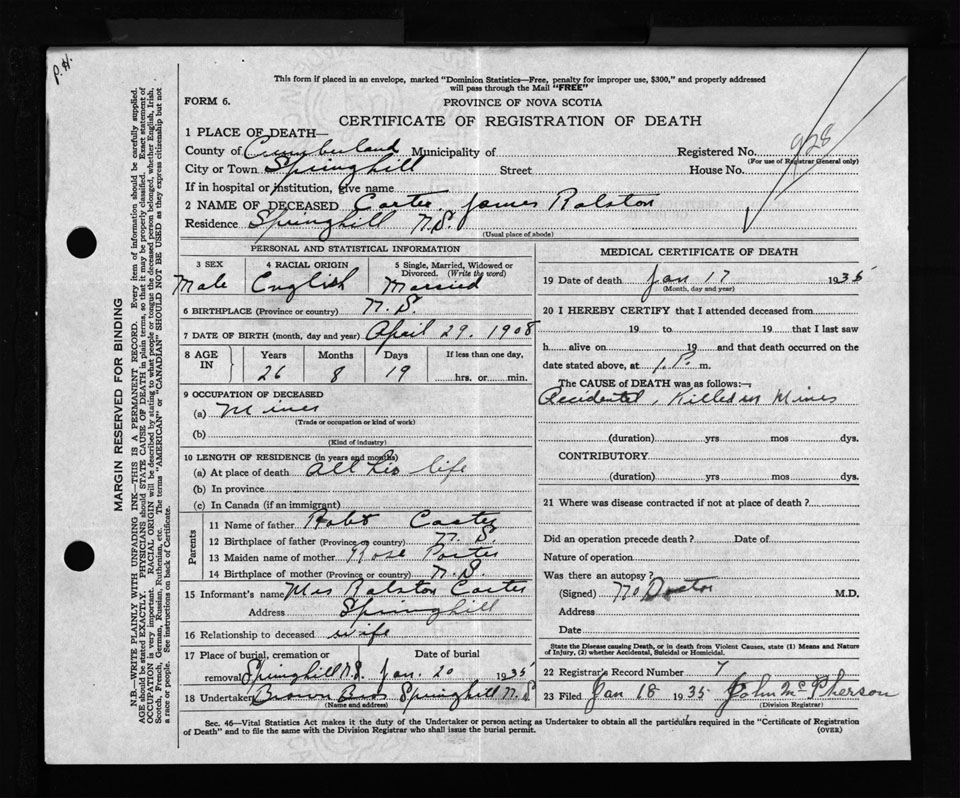 P.H.
This form if placed in an envelope, marked "Dominion Statistics—Free, penalty for improper use, $300," and properly addressed
will pass through the Mail "FREE"
FORM 6.
PROVINCE OF NOVA SCOTIA
CERTIFICATE OF REGISTRATION OF DEATH
1 PLACE OF DEATH—
County of Cumberland Municipality of Registered No. 928
(For use of Registrar General only)
City or Town Springhill Street House No.
If in hospital or institution, give name
2 NAME OF DECEASED Carter James Ralston
Residence Springhill N.S.
(Usual place of abode)
PERSONAL AND STATISTICAL INFORMATION
3 SEX 4 RACIAL ORIGIN 5 Single, Married, Widowed or
Divorced. (Write the word)
Male English Married
6 BIRTHPLACE (Province or country) N.S.
7 DATE OF BIRTH (month, day and year) April 29. 1908
8 AGE IN Years Months Days If less than one day,
26 8 19 hrs. or min.
9 OCCUPATION OF DECEASED
(a) Miner
(Trade or occupation or kind of work)
(b)
(Kind of industry)
10 LENGTH OF RESIDENCE (in years and months)
(a) At place of death all his life
(b) In province
(c) In Canada (if an immigrant)
Parents
11 Name of father Robt Carter
12 Birthplace of father (Province or country) N.S.
13 Maiden name of mother Rose Porter
14 Birthplace of mother (Province or country) N.S.
15 Informant's name Mrs Ralston Carter
Address Springhill
16 Relationship to deceased wife
17 Place of burial, cremation or removal Date of burial
Springhill N.S. Jan. 20 1935
18 Undertaker Brown Bros Springhill N.S.
(Name and address)
MEDICAL CERTIFICATE OF DEATH
19 Date of death Jan 17 1935
(Month, day and year)
20 I HEREBY CERTIFY that I attended deceased from
19 to 19 that I last saw
h alive on 19 and that death occurred on the
date stated above, at 1. P. m.
The CAUSE of DEATH was as follows:—
Accidental, Killed in Mines
(duration) yrs mos dys.
CONTRIBUTORY
(duration) yrs. mos dys.
21 Where was disease contracted if not at place of death?
Did an operation precede death? Date of
Nature of operation
Was there an autopsy?
(Signed) No Doctor M.D.
Address
Date
State the Disease causing Death, or in death from Violent Causes, state (1) Means and Nature
of Injury, (2) whether Accidental, Suicidal or Homicidal.
22 Registrar's Record Number 7
23 Filed Jan 18 1935 John McPherson
(Division Registrar)
Sec. 46—Vital Statistics Act makes it the duty of the Undertaker or person acting as Undertaker to obtain all the particulars required in the "Certificate of Registration
of Death" and to file the same with the Division Registrar who shall issue the burial permit. (OVER)
MARGIN RESERVED FOR BINDING
N.B.—WRITE PLAINLY WITH UNFADING INK—THIS IS A PERMANENT RECORD. Every item of information should be carefully supplied.
AGE should be stated EXACTLY. PHYSICIANS should STATE CAUSE OF DEATH in plain terms, so that it may be properly classified. Exact statement of
OCCUPATION is very important. RACIAL ORIGIN will be described by stating to what people or tongue the deceased person belonged, whether English, Irish,
Scotch, French, German, Russian, Ruthenian, etc. The terms "AMERICAN" or "CANADIAN" SHOULD NOT BE USED as they express citizenship but not
a race or people. See instructions on back of Certificate.